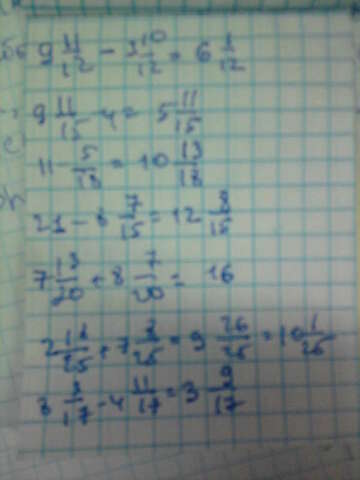 9 11/12 - 3 10/12 = 6 1/12
9 11/15 - 4 = 5 11/15
11 - 5/18 = 10 13/18
21 - 8 7/15 = 12 8/15
7 13/20 + 8 7/20 = 16
+ 7 = 9 26/25 = 10 1/25
8 3/17 - 4 11/17 = 3 9/17